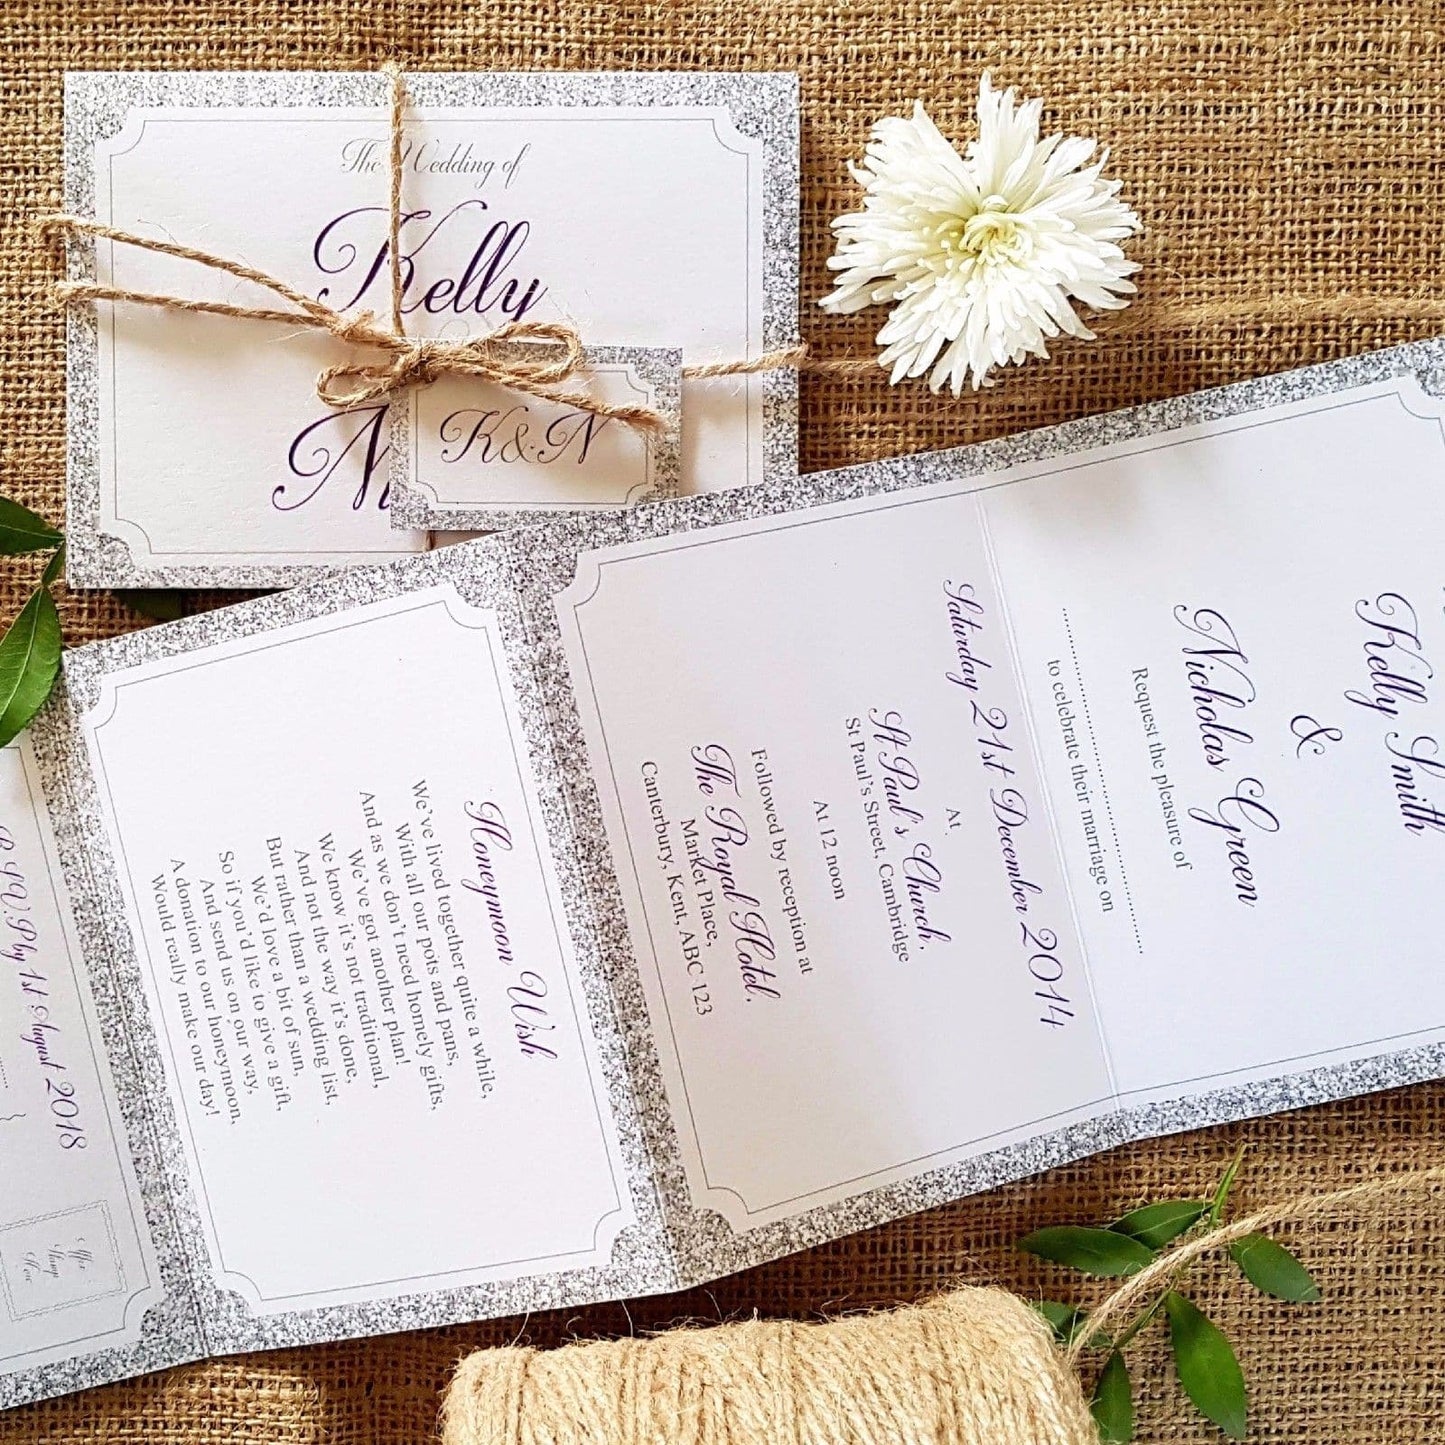 The Wedding of
Kelly
K&N
Kelly Smith
&
Nicholas Green
Request the pleasure of
to celebrate their marriage on
Saturday 21st December 2014
At
St Paul's Church,
St Paul's Street, Cambridge
At 12 noon
Followed by reception at
The Royal Hotel,
Market Place,
Canterbury, Kent, ABC 123
Honeymoon Wish
We've lived together quite a while,
With all our pots and pans,
And as we don't need homely gifts,
We've got another plan!
We know it's not traditional,
And not the way it's done,
But rather than a wedding list,
We'd love a bit of sun,
So if you'd like to give a gift,
And send us on our way,
A donation to our honeymoon,
Would really make our day!
1st August 2018
Stamp
Here